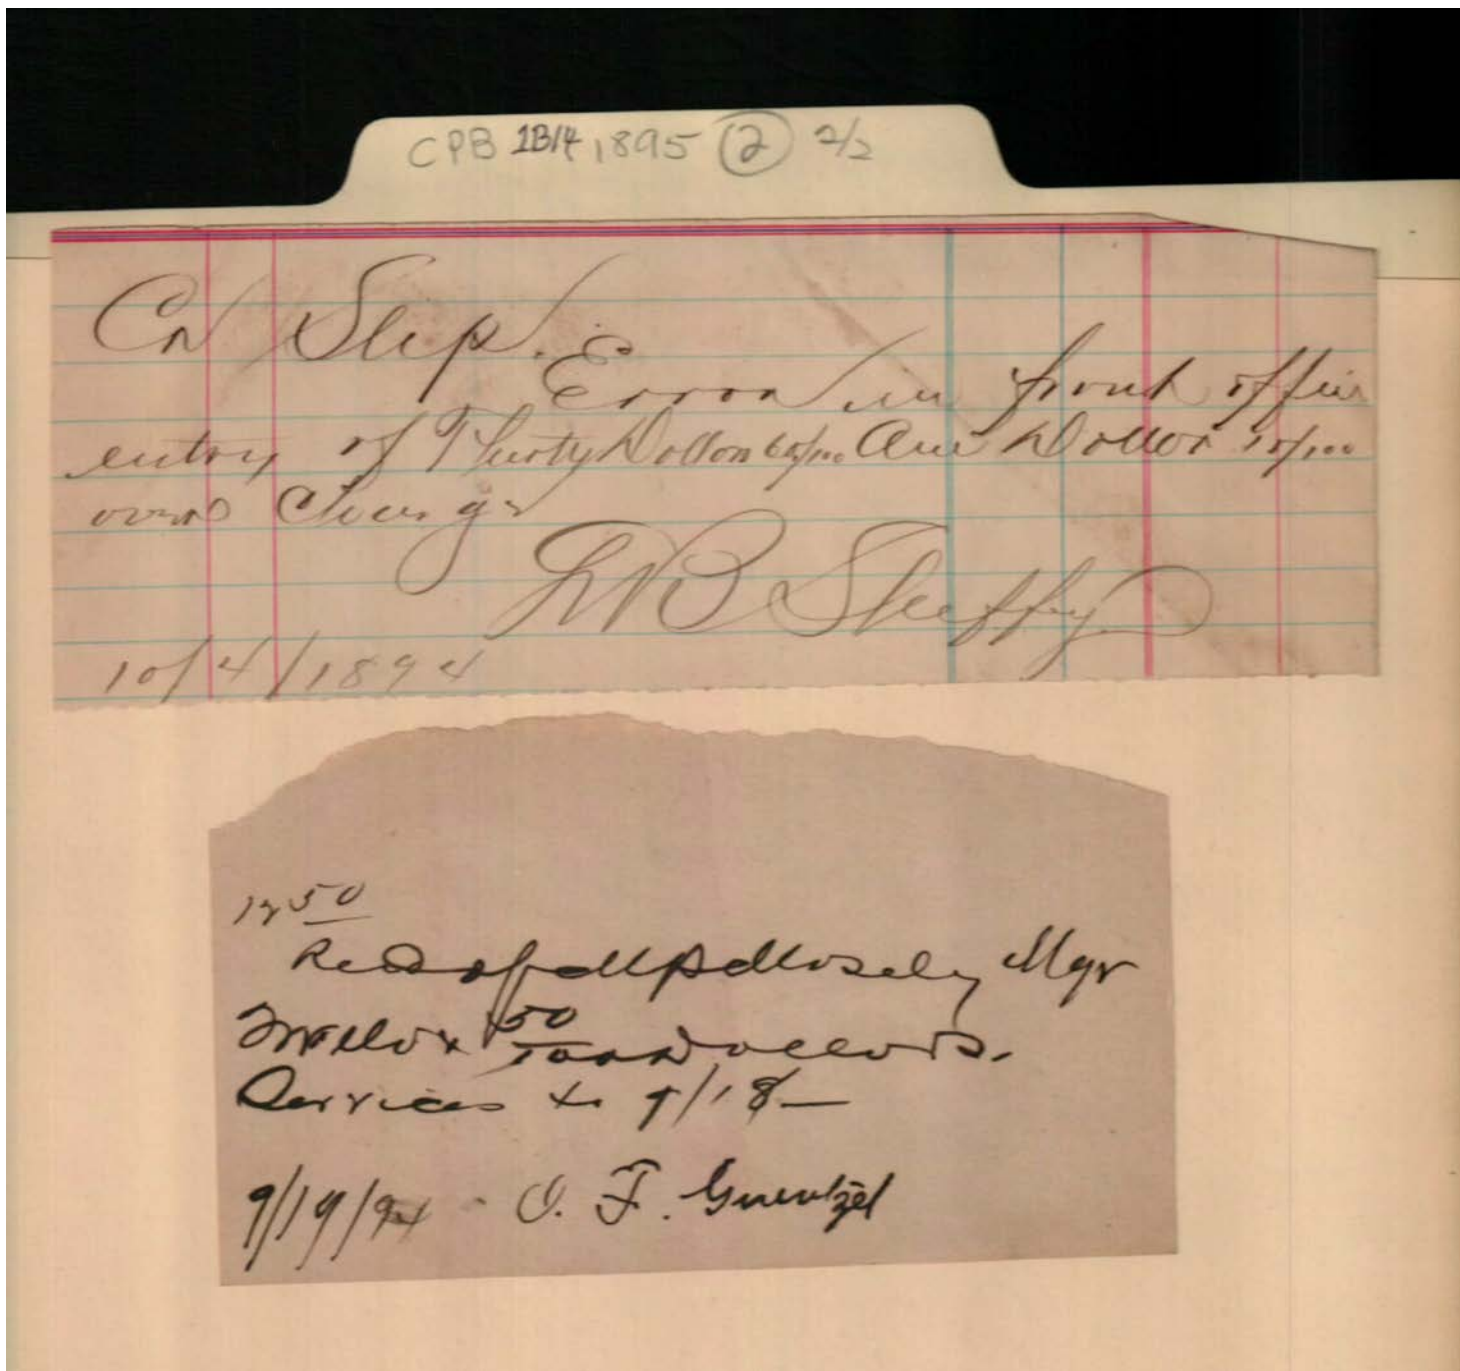 CPB 1B14 1895 ② 2/2
Cr Slip.
Error in front office
entry of Thirty Dollars 60/100 One Dollar 10/100
over Charge
B Sheffy
10/4/1894
12 50
Recd of M P Mosely Mgr
Twelve & 50/100 Dollars.
Services to 9/18—
9/19/94 - O. F. Guentzel